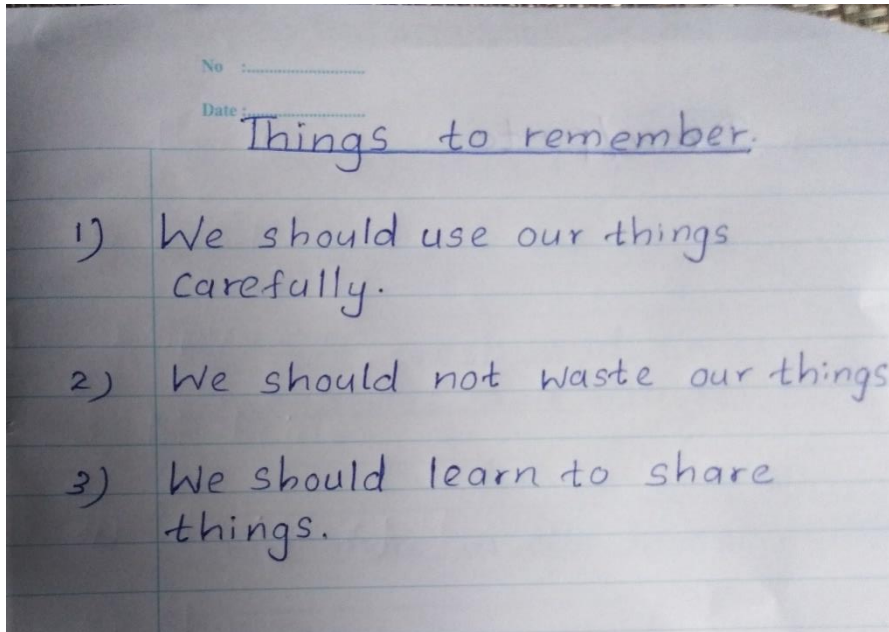 No :....................
Date :....................
Things to remember.
1) We should use our things
carefully.
2) We should not waste our things
3) We should learn to share
things.